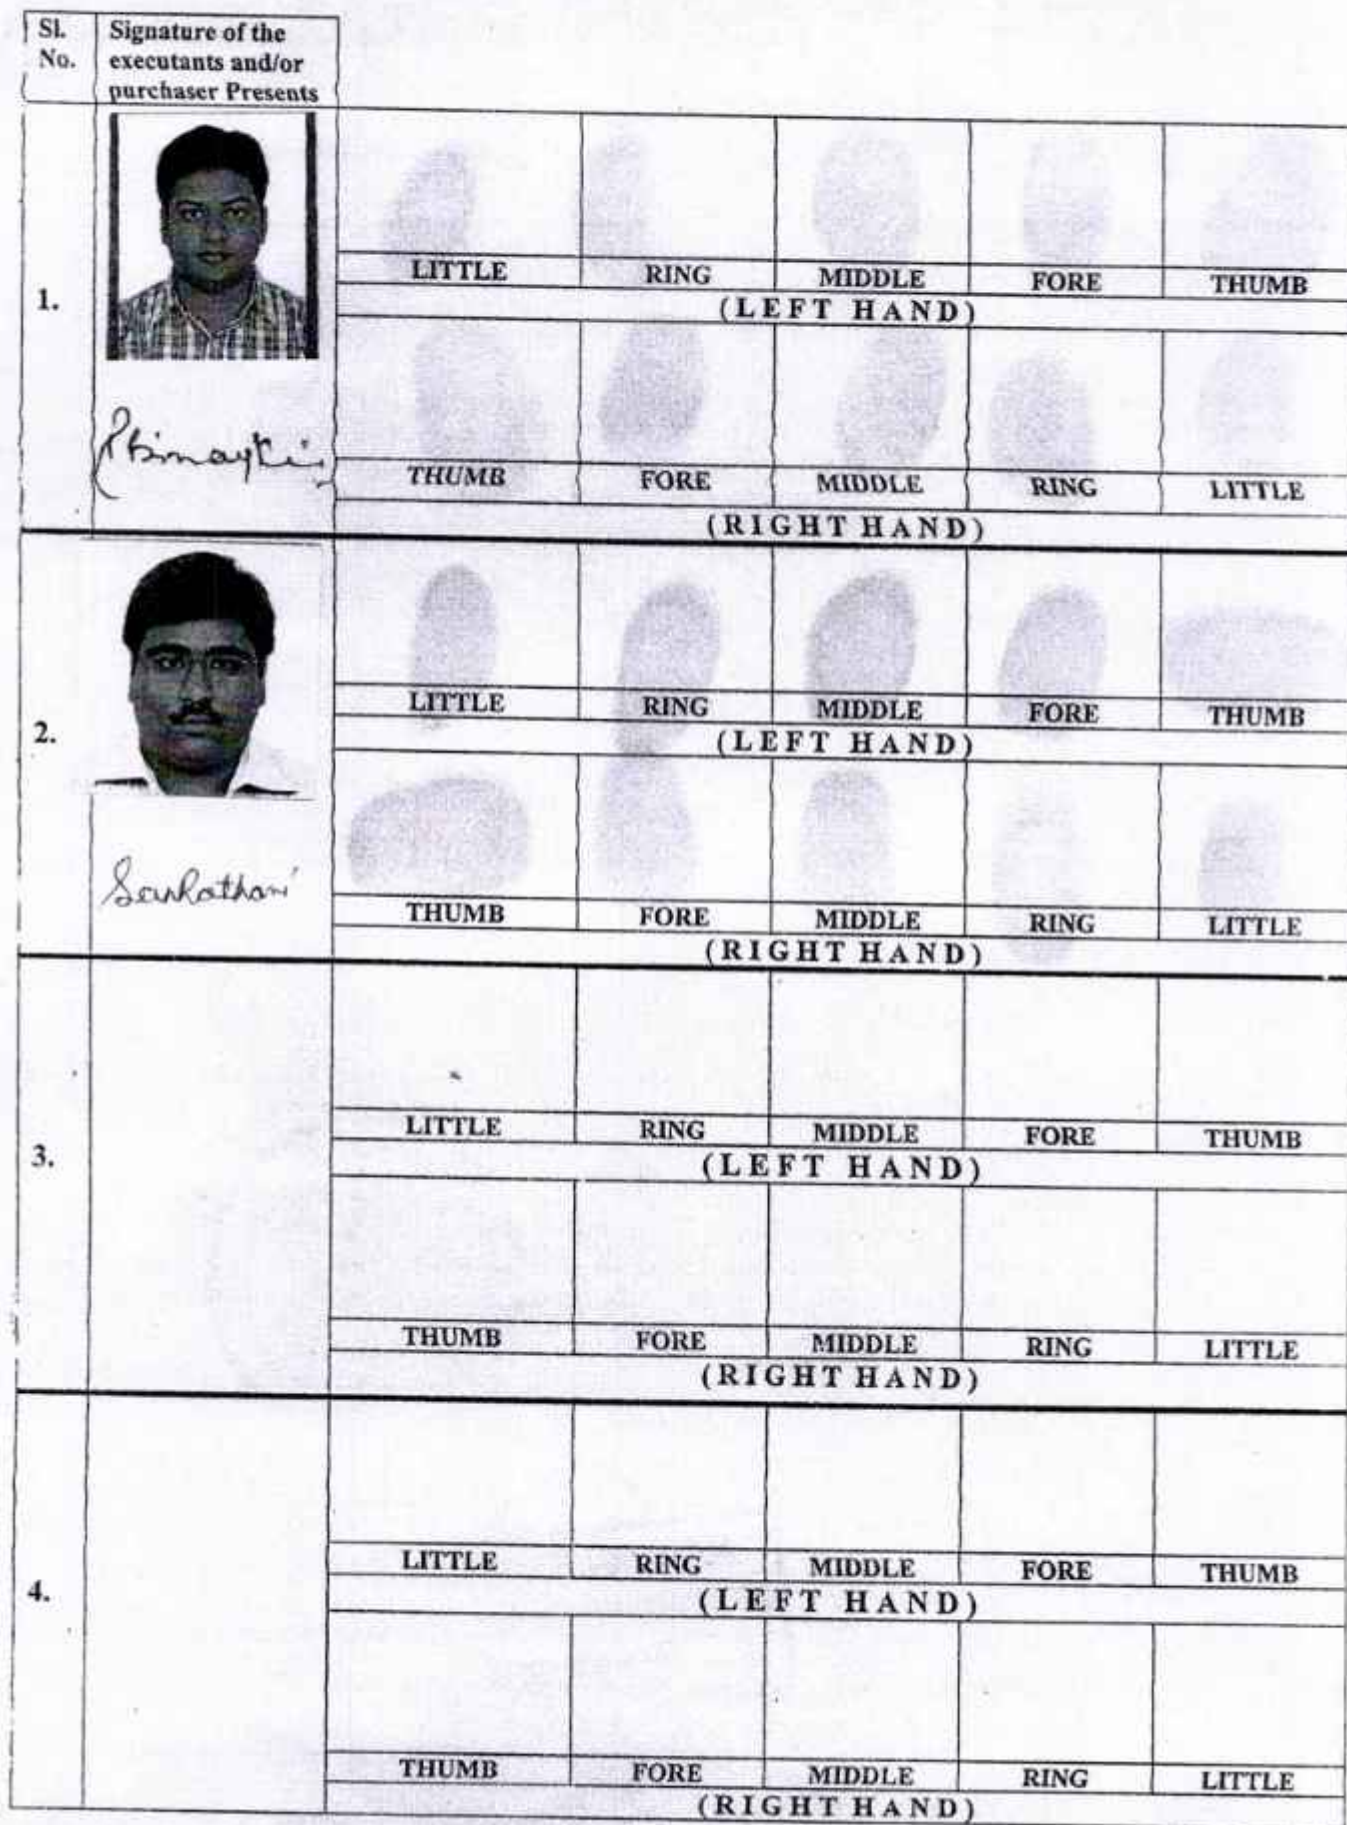 Sl. Signature of the
No. executants and/or
purchaser Presents
1.
LITTLE RING MIDDLE FORE THUMB
(LEFT HAND)
THUMB FORE MIDDLE RING LITTLE
(RIGHT HAND)
2.
LITTLE RING MIDDLE FORE THUMB
(LEFT HAND)
THUMB FORE MIDDLE RING LITTLE
(RIGHT HAND)
3.
LITTLE RING MIDDLE FORE THUMB
(LEFT HAND)
THUMB FORE MIDDLE RING LITTLE
(RIGHT HAND)
4.
LITTLE RING MIDDLE FORE THUMB
(LEFT HAND)
THUMB FORE MIDDLE RING LITTLE
(RIGHT HAND)